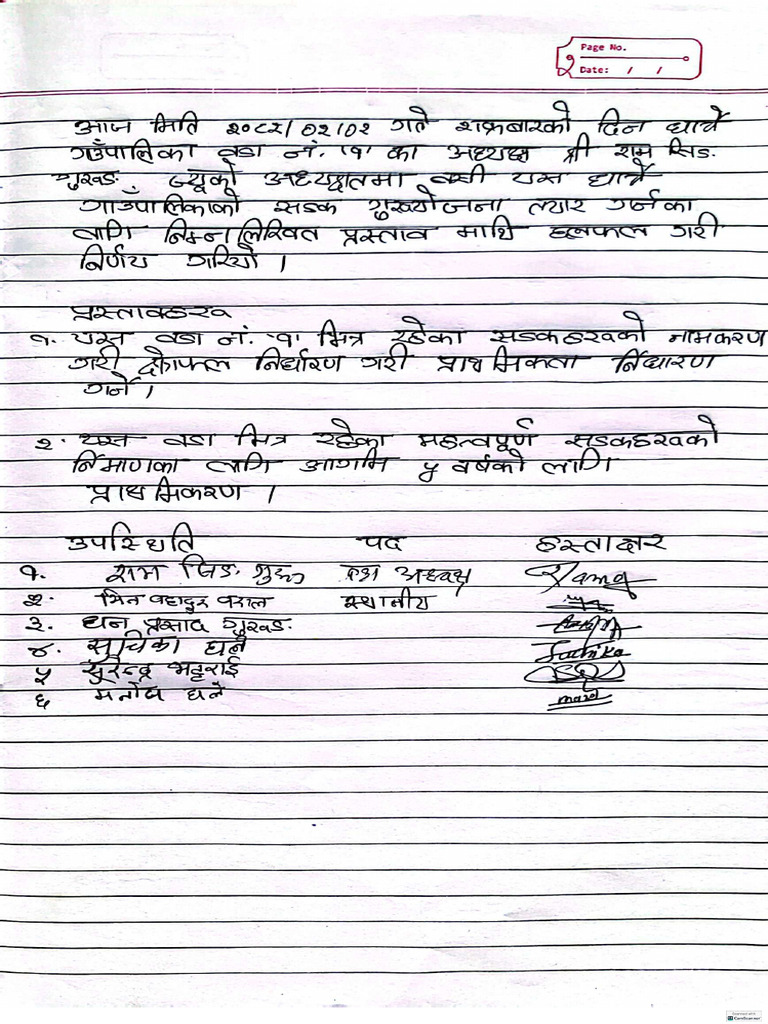 Page No.
Date: / /
आज मिति २०८२/०२/०२ गते शुक्रबारको दिन धार्चे
गाउँपालिका वडा नं. '१' का अध्यक्ष श्री राम सिङ.
गुरुङ ज्यूको अध्यक्षतामा बसी यस धार्चे
गाउँपालिकाको सडक गुरुयोजना त्यार गर्नका
लागि निम्न लिखित प्रस्ताव माथि छलफल गरी
निर्णय गरियो ।
प्रस्तावहरु
१. यस वडा नं. '१' भित्र रहेका सडकहरुको नामकरण
गरी क्षेत्रफल निर्धारण गरी प्राथमिकता निर्धारण
गर्ने ।
२. यस वडा भित्र रहेका महत्वपूर्ण सडकहरुको
निर्माणका लागि आगामि ५ वर्षको लागि
प्राथमिकरण ।
उपस्थिति पद हस्ताक्षर
१. राम सिङ गुरुङ वडा अध्यक्ष
२. मिन बहादुर स्थानीय
३. धन प्रसाद गुरुङ
४. सुचिका घले Suchika
५ सुरेन्द्र भट्टराई
६ मनोज घले
Scanned with
CamScanner